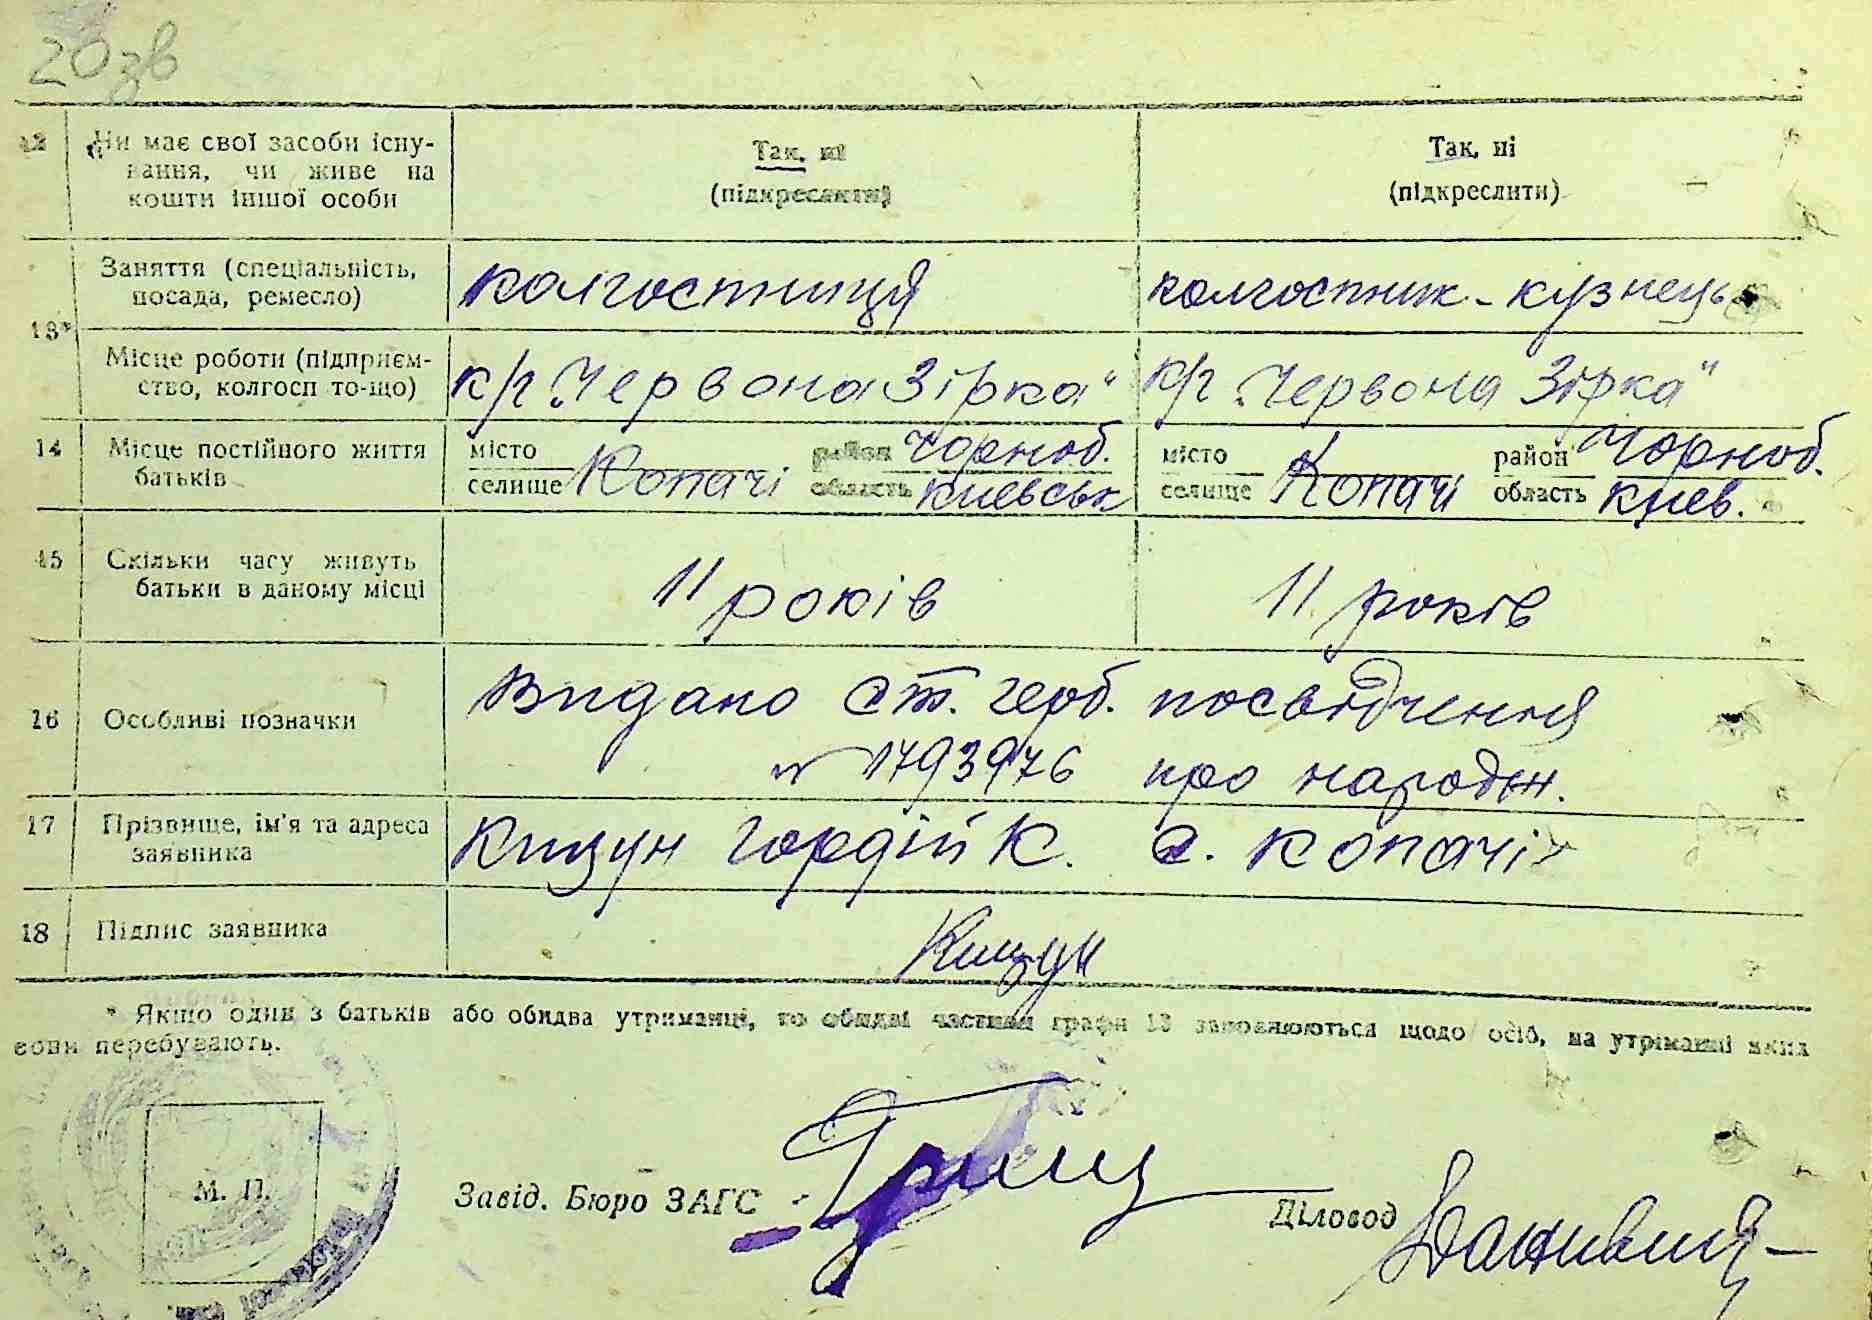 20 зв
12 Чи має свої засоби існу- Так, ні Так, ні
вання, чи живе на (підкреслити) (підкреслити)
кошти іншої особи
13* Заняття (спеціальність, колгоспниця колгоспник - кузнець
посада, ремесло)
Місце роботи (підприєм- к/г „Червона Зірка" к/г „Червона Зірка"
ство, колгосп то-що)
14 Місце постійного життя місто район Чорноб. місто район Чорноб.
батьків селище Копачі область Киевськ селище Копачі область Киев.
15 Скільки часу живуть 11 років 11 років
батьки в даному місці
16 Особливі позначки Видано ст. герб. посвідчення
№ 1793976 про народжен.
17 Прізвище, ім'я та адреса Кизун Гордій К. с. Копачі
заявника
18 Підпис заявника Кизун
* Якщо один з батьків або обидва утриманці, то обидві частини графи 13 заповнюються щодо осіб, на утриманні яких
вони перебувають.
М. П. Завід. Бюро ЗАГС Діловод